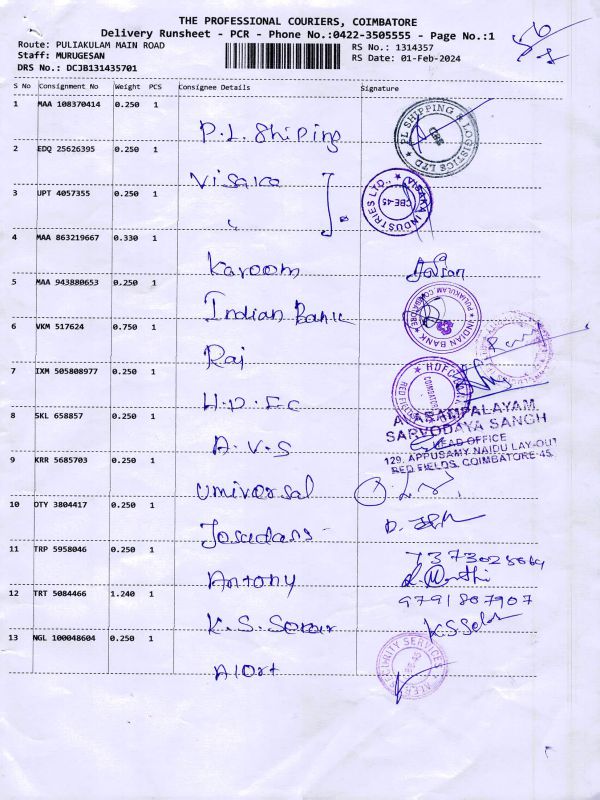 THE PROFESSIONAL COURIERS, COIMBATORE
Delivery Runsheet - PCR - Phone No.:0422-3505555 - Page No.:1
Route: PULIAKULAM MAIN ROAD
RS No.: 1314357
Staff: MURUGESAN
RS Date: 01-Feb-2024
DRS No.: DCJB131435701
S No Consignment No Weight PCS Consignee Details Signature
1 MAA 108370414 0.250 1
P.L. Shiping
PL SHIPPING & LOGISTICS LTD
2 EDQ 25626395 0.250 1
Visaka
VISAKA INDUSTRIES LTD.,
CBE-45
3 UPT 4057355 0.250 1
4 MAA 863219667 0.330 1
Karoom
5 MAA 943880653 0.250 1
Indian Bank
INDIAN BANK
PULIAKULAM COIMBATORE
6 VKM 517624 0.750 1
Raj
7 IXM 505808977 0.250 1
H.D.F.C
HDFC
COIMBATORE
8 SKL 658857 0.250 1
A.V.S
ALASAMPALAYAM
SARVODAYA SANGH
HEAD OFFICE
129, APPUSAMY NAIDU LAY-OUT
RED FIELDS, COIMBATORE-45.
9 KRR 5685703 0.250 1
Universal
10 OTY 3804417 0.250 1
Josadass
11 TRP 5958046 0.250 1
Antony
12 TRT 5084466 1.240 1
9791807907
K.S.
13 NGL 100048604 0.250 1
Alort
SECURITY SERVICES